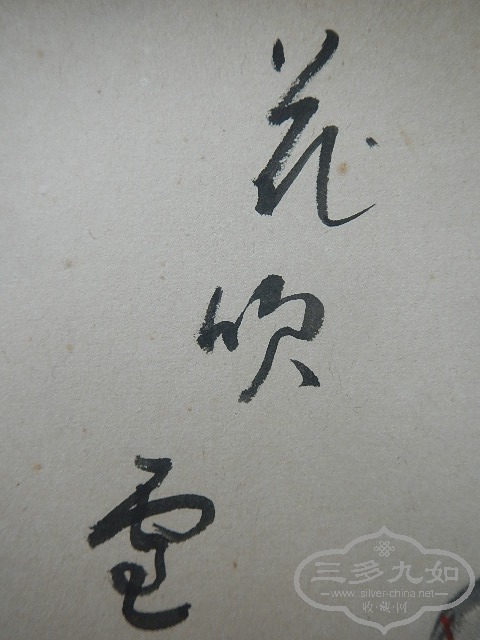 花吹雪
三多九如
www.silver-china.net
收·藏·网